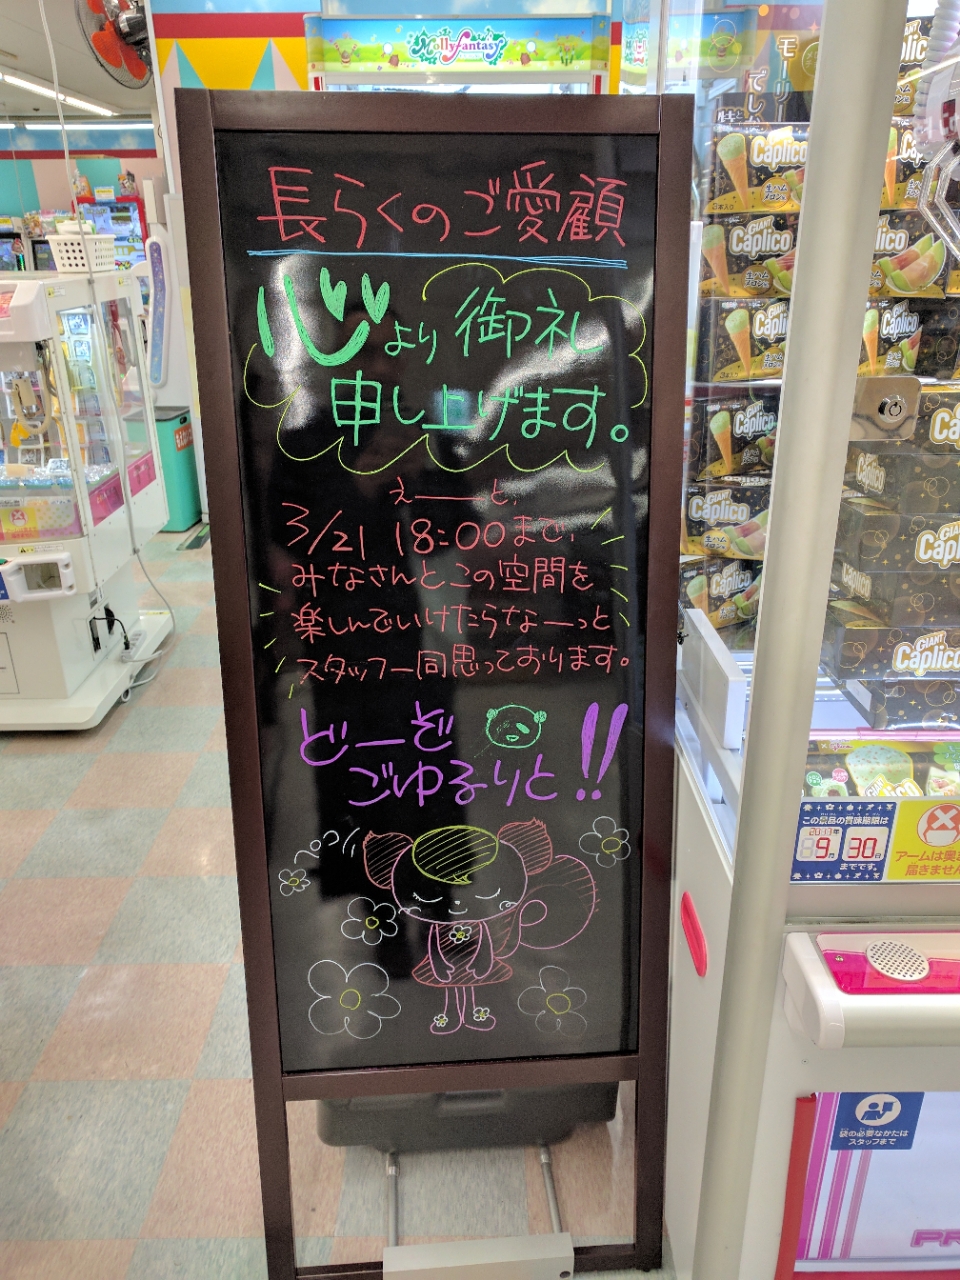 Mollyfantasy
長らくのご愛顧
心より御礼
申し上げます。
えーーと、
3/21 18:00まで、
みなさんとこの空間を
楽しんでいけたらなーっと
スタッフ一同思っております。
どーぞ
ごゆるりと!!
ペコッ
モーリー
でしか
GIANT
Caplico
生ハム
メロン味
この景品の賞味期限は
9月30日
までです。
アームは奥まで
届きません
袋の必要なかたは
スタッフまで